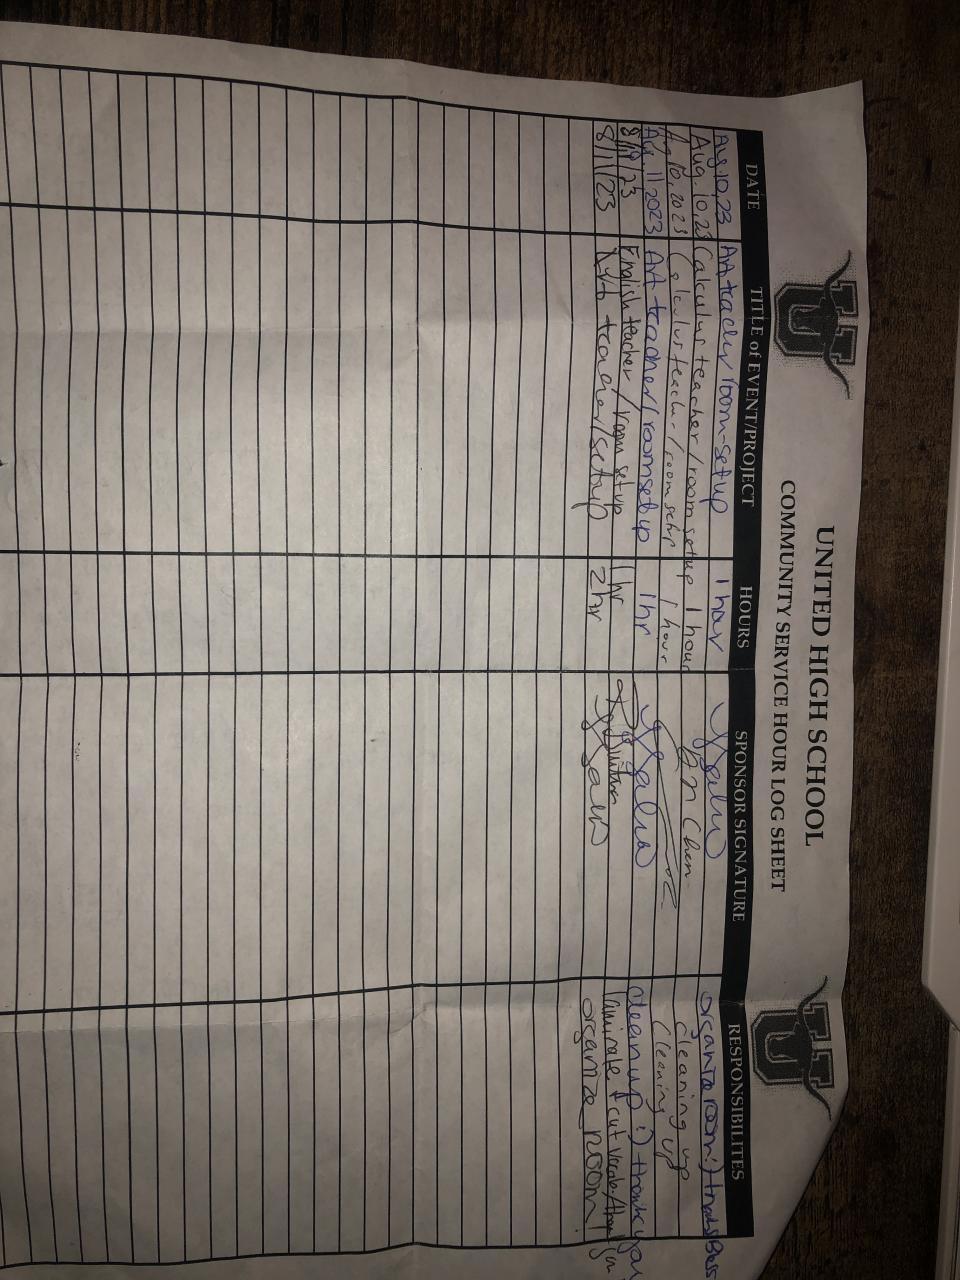 UNITED HIGH SCHOOL
COMMUNITY SERVICE HOUR LOG SHEET
DATE TITLE of EVENT/PROJECT HOURS SPONSOR SIGNATURE RESPONSIBILITES
Aug. 10, 23 Art teacher room-setup 1 hour organize room :)
Aug. 10, 23 Calculus teacher/room setup 1 hour cleaning up
Aug 10, 2023 Calculus teacher/room setup 1 hour Cleaning up
Aug. 11, 2023 Art teacher/room setup 1hr clean up :) thank you
8/11/23 English teacher/room setup 1hr laminate & cut vocab/
8/11/23 Art teacher/setup 2hr organize room